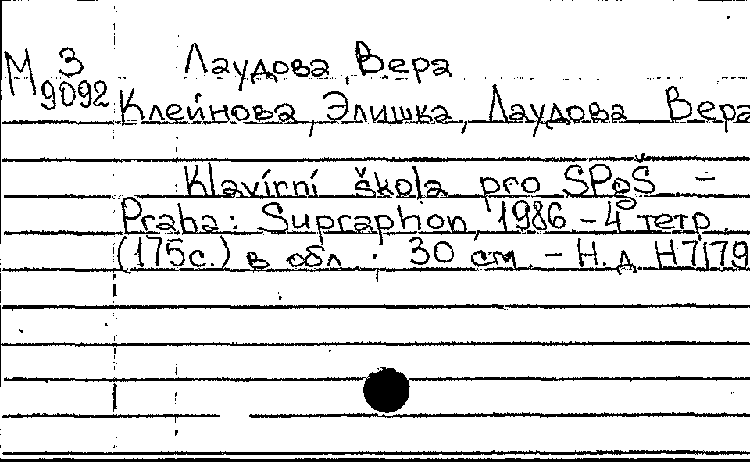 М 3
9092
Лаудова Вера
Клейнова, Элишка, Лаудова Вера
Klavírní škola pro SPoŠ –
Praha: Supraphon, 1986. – 4° тетр.
(175с.) в обл. 30 см. – Н. д. H7179